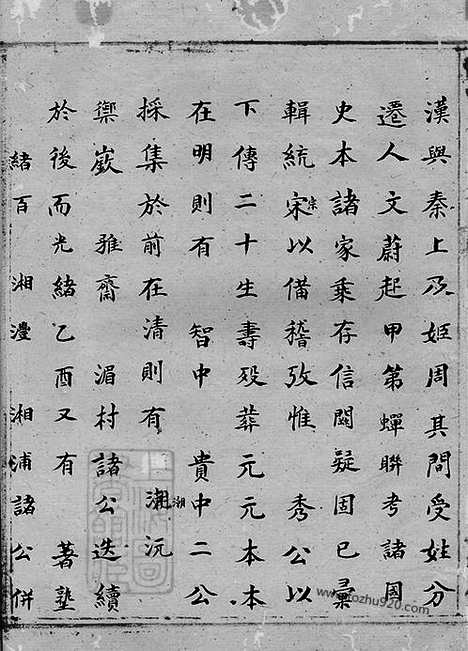 漢與秦上及姬周其間受姓分
遷人文蔚起甲第蟬聯考諸國
史本諸家乘存信闕疑固已彙
輯統宋宗以備稽攷惟 秀公以
下傳二十生壽殁葬元元本本
在明則有 智中 貴中二公
採集於前在清則有 湘沅
禦嶽 雅齋 湄村諸公迭續
於後而光緒乙酉又有 著塾
緒百 湘澧 湘浦諸公併